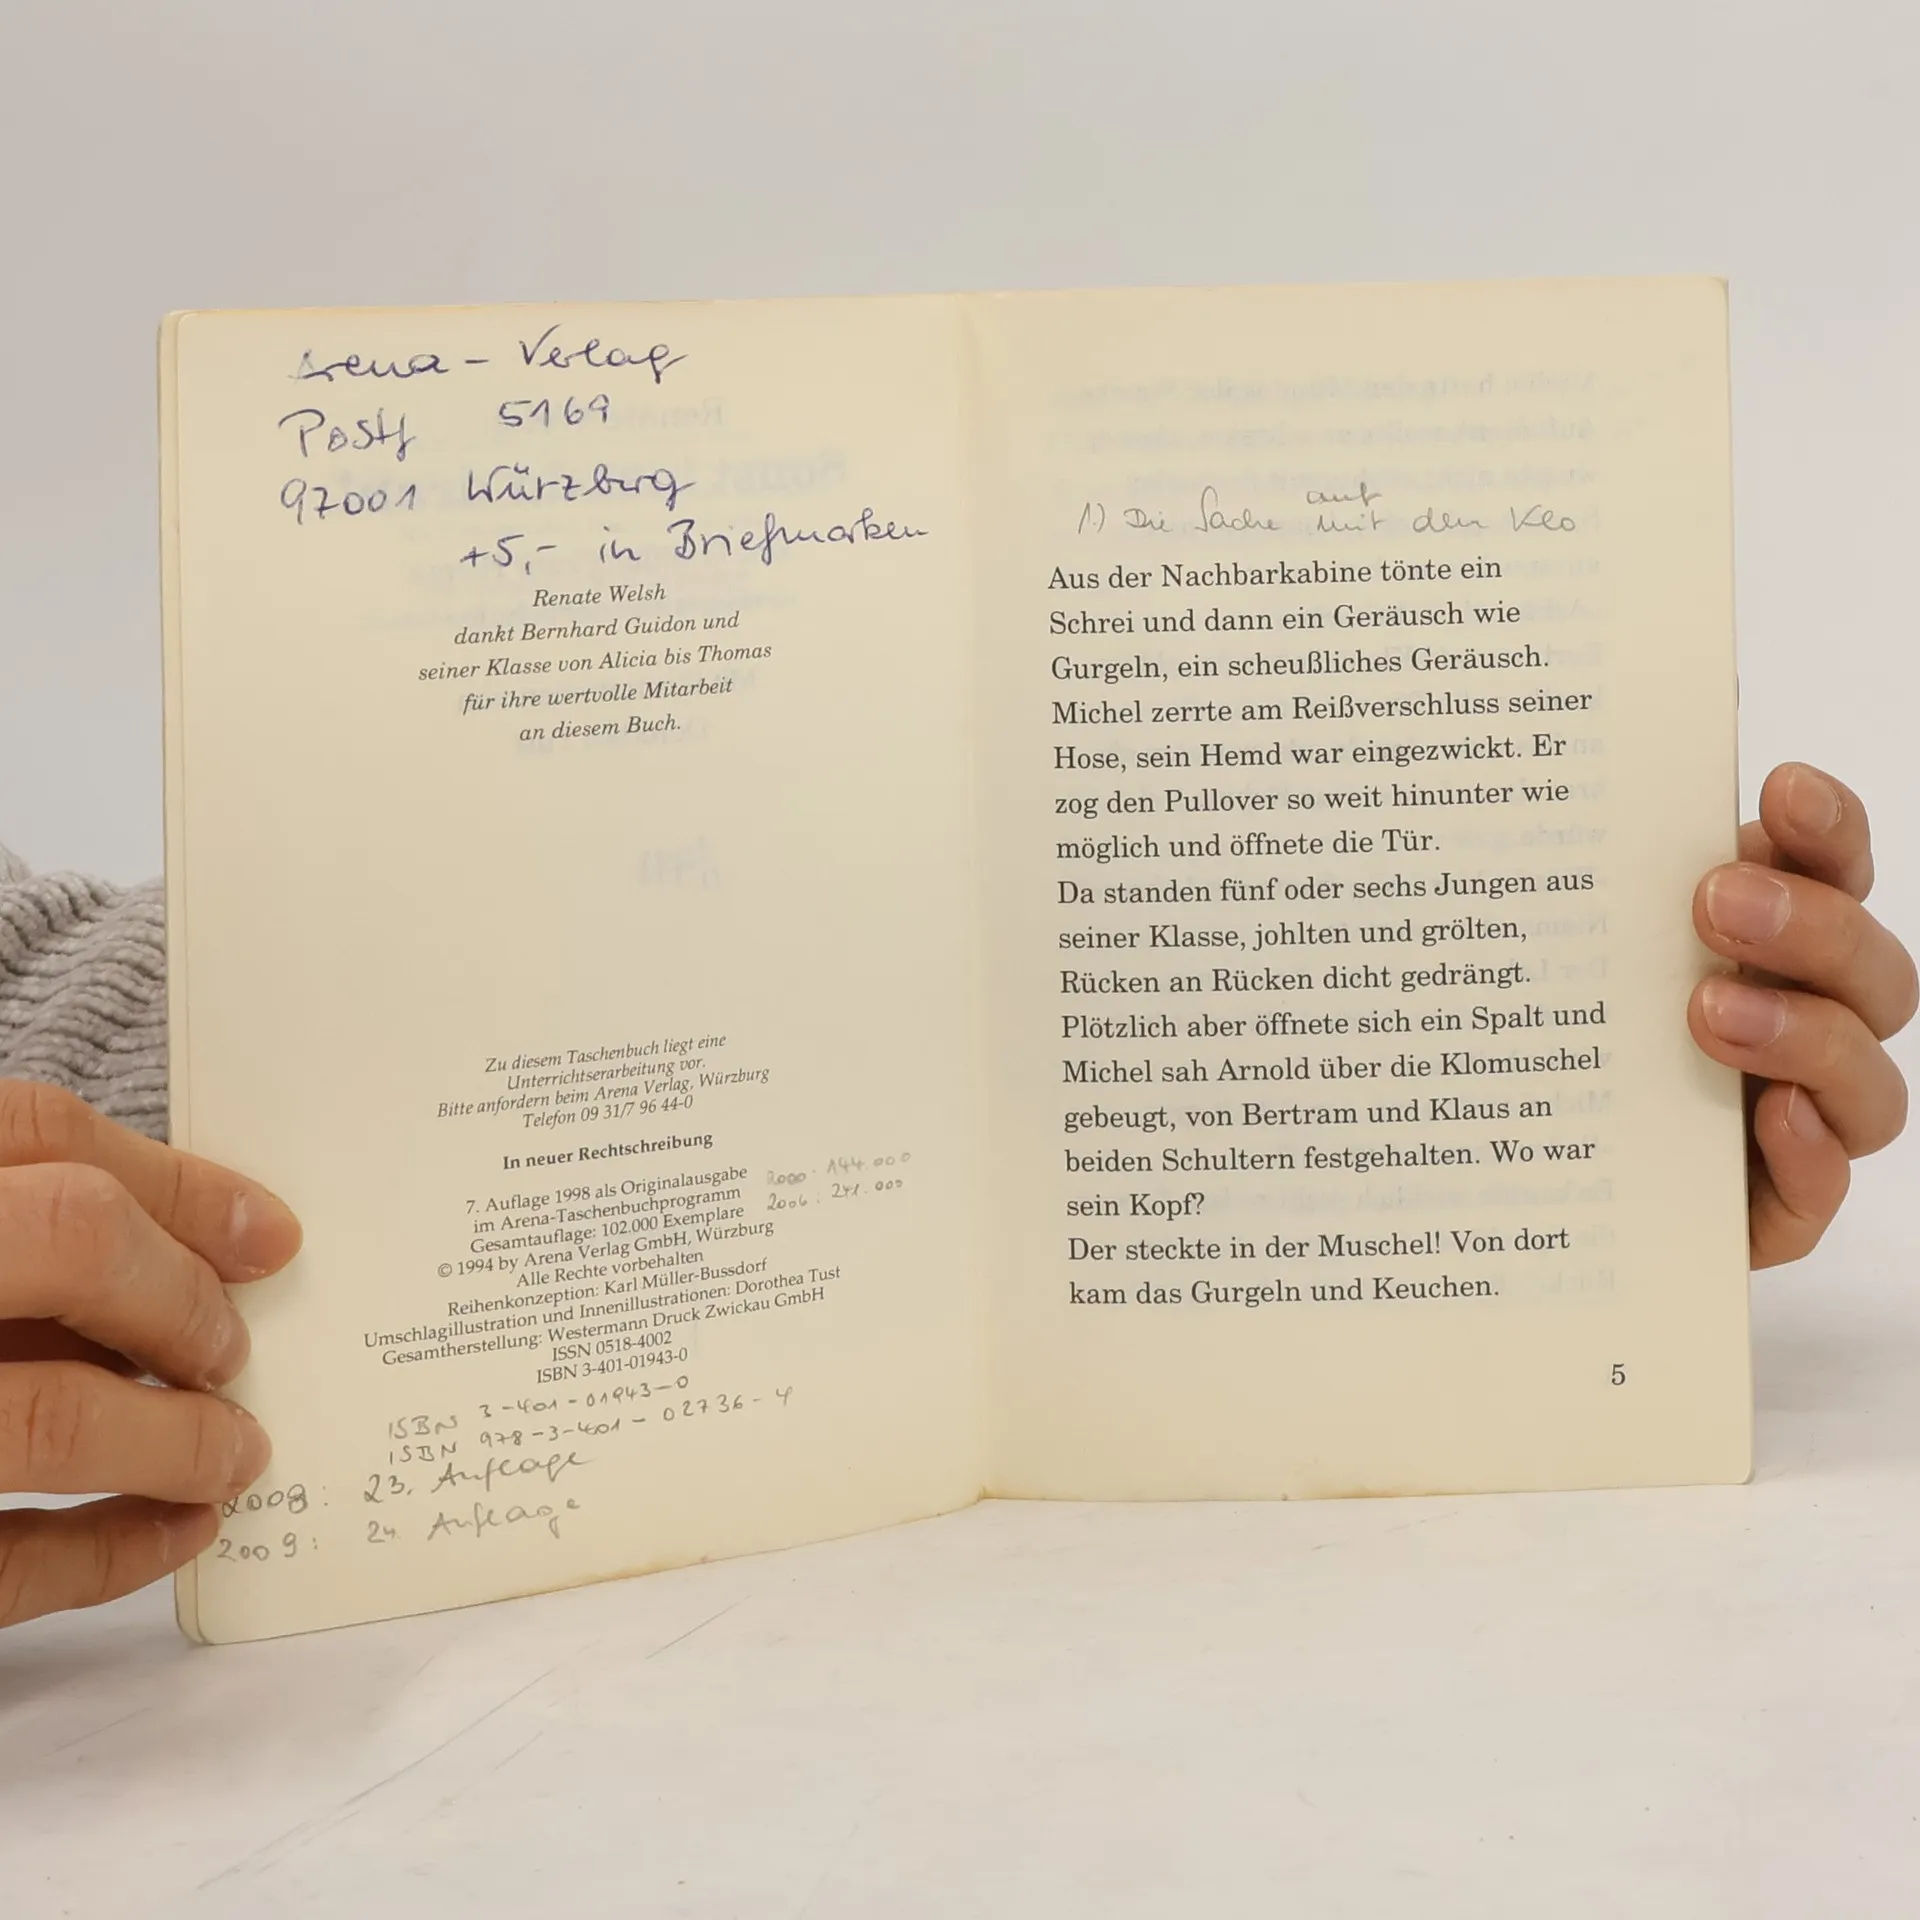 Arena - Verlag
Postf 5169
97001 Würzburg
+5,- in Briefmarken
Renate Welsh
dankt Bernhard Guidon und
seiner Klasse von Alicia bis Thomas
für ihre wertvolle Mitarbeit
an diesem Buch.
Zu diesem Taschenbuch liegt eine
Unterrichtserarbeitung vor.
Bitte anfordern beim Arena Verlag, Würzburg
Telefon 09 31/7 96 44-0
In neuer Rechtschreibung
7. Auflage 1998 als Originalausgabe
im Arena-Taschenbuchprogramm 2000: 144.000
Gesamtauflage: 102.000 Exemplare 2006: 241.000
© 1994 by Arena Verlag GmbH, Würzburg
Alle Rechte vorbehalten
Reihenkonzeption: Karl Müller-Bussdorf
Umschlagillustration und Innenillustrationen: Dorothea Tust
Gesamtherstellung: Westermann Druck Zwickau GmbH
ISSN 0518-4002
ISBN 3-401-01943-0
ISBN 3-401-01943-0
ISBN 978-3-401-02736-4
2008: 23. Auflage
2009: 24. Auflage
auf
1.) Die Sache mit dem Klo
Aus der Nachbarkabine tönte ein
Schrei und dann ein Geräusch wie
Gurgeln, ein scheußliches Geräusch.
Michel zerrte am Reißverschluss seiner
Hose, sein Hemd war eingezwickt. Er
zog den Pullover so weit hinunter wie
möglich und öffnete die Tür.
Da standen fünf oder sechs Jungen aus
seiner Klasse, johlten und grölten,
Rücken an Rücken dicht gedrängt.
Plötzlich aber öffnete sich ein Spalt und
Michel sah Arnold über die Klomuschel
gebeugt, von Bertram und Klaus an
beiden Schultern festgehalten. Wo war
sein Kopf?
Der steckte in der Muschel! Von dort
kam das Gurgeln und Keuchen.
5